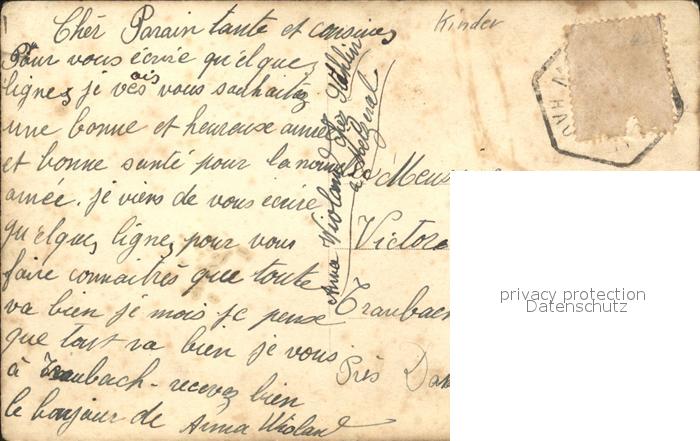 Kinder
Chèr Parain tante et consines
Pour vous écrire quélques
lignes je vès vous souhaitez
ois
une bonne et heuraux anneé
et bonne santé pour la nouvele
anneé. je viens de vous écrire
quélques lignes pour vous
faire connaitrés que toute
va bien jé mois je pense
que tout va bien je vous
à Traubach - recevez bien
le bonjour de Anna Violand
Anna Violand chez Stéhlin
à Metzeral
Victor
Traubach
Près Dan
privacy protection
Datenschutz